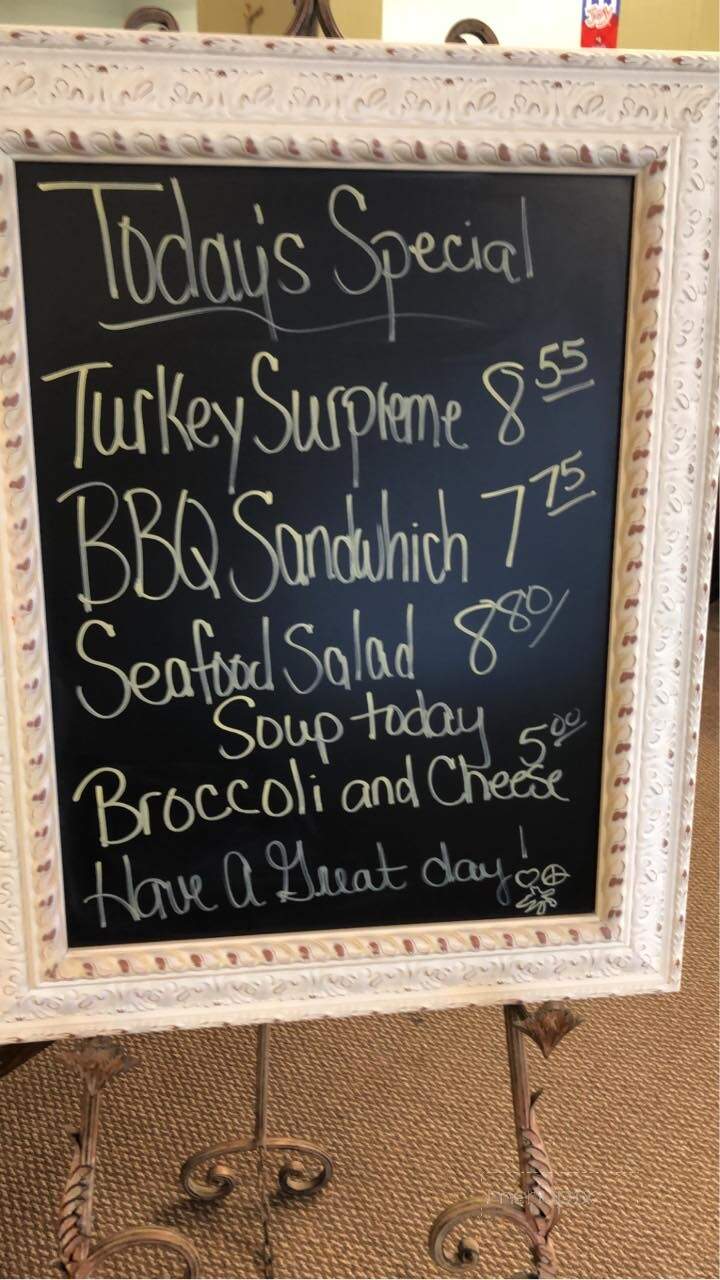 Today's Special
Turkey Surpreme 8 55
BBQ Sandwhich 7 75
Seafood Salad 8 80/
Soup today
Broccoli and Cheese 5 00
Have A Great day!